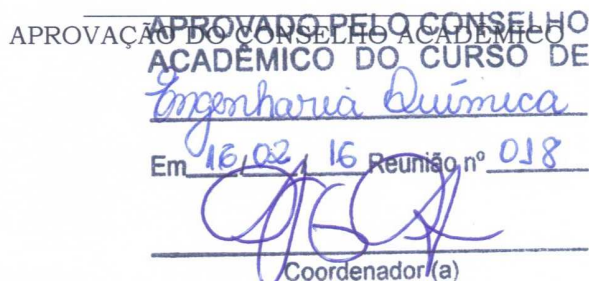 APROVAÇÃO DO CONSELHO ACADÊMICO
APROVADO PELO CONSELHO
ACADÊMICO DO CURSO DE
Engenharia Química
Em 16/02/16 Reunião nº 018
Coordenador(a)